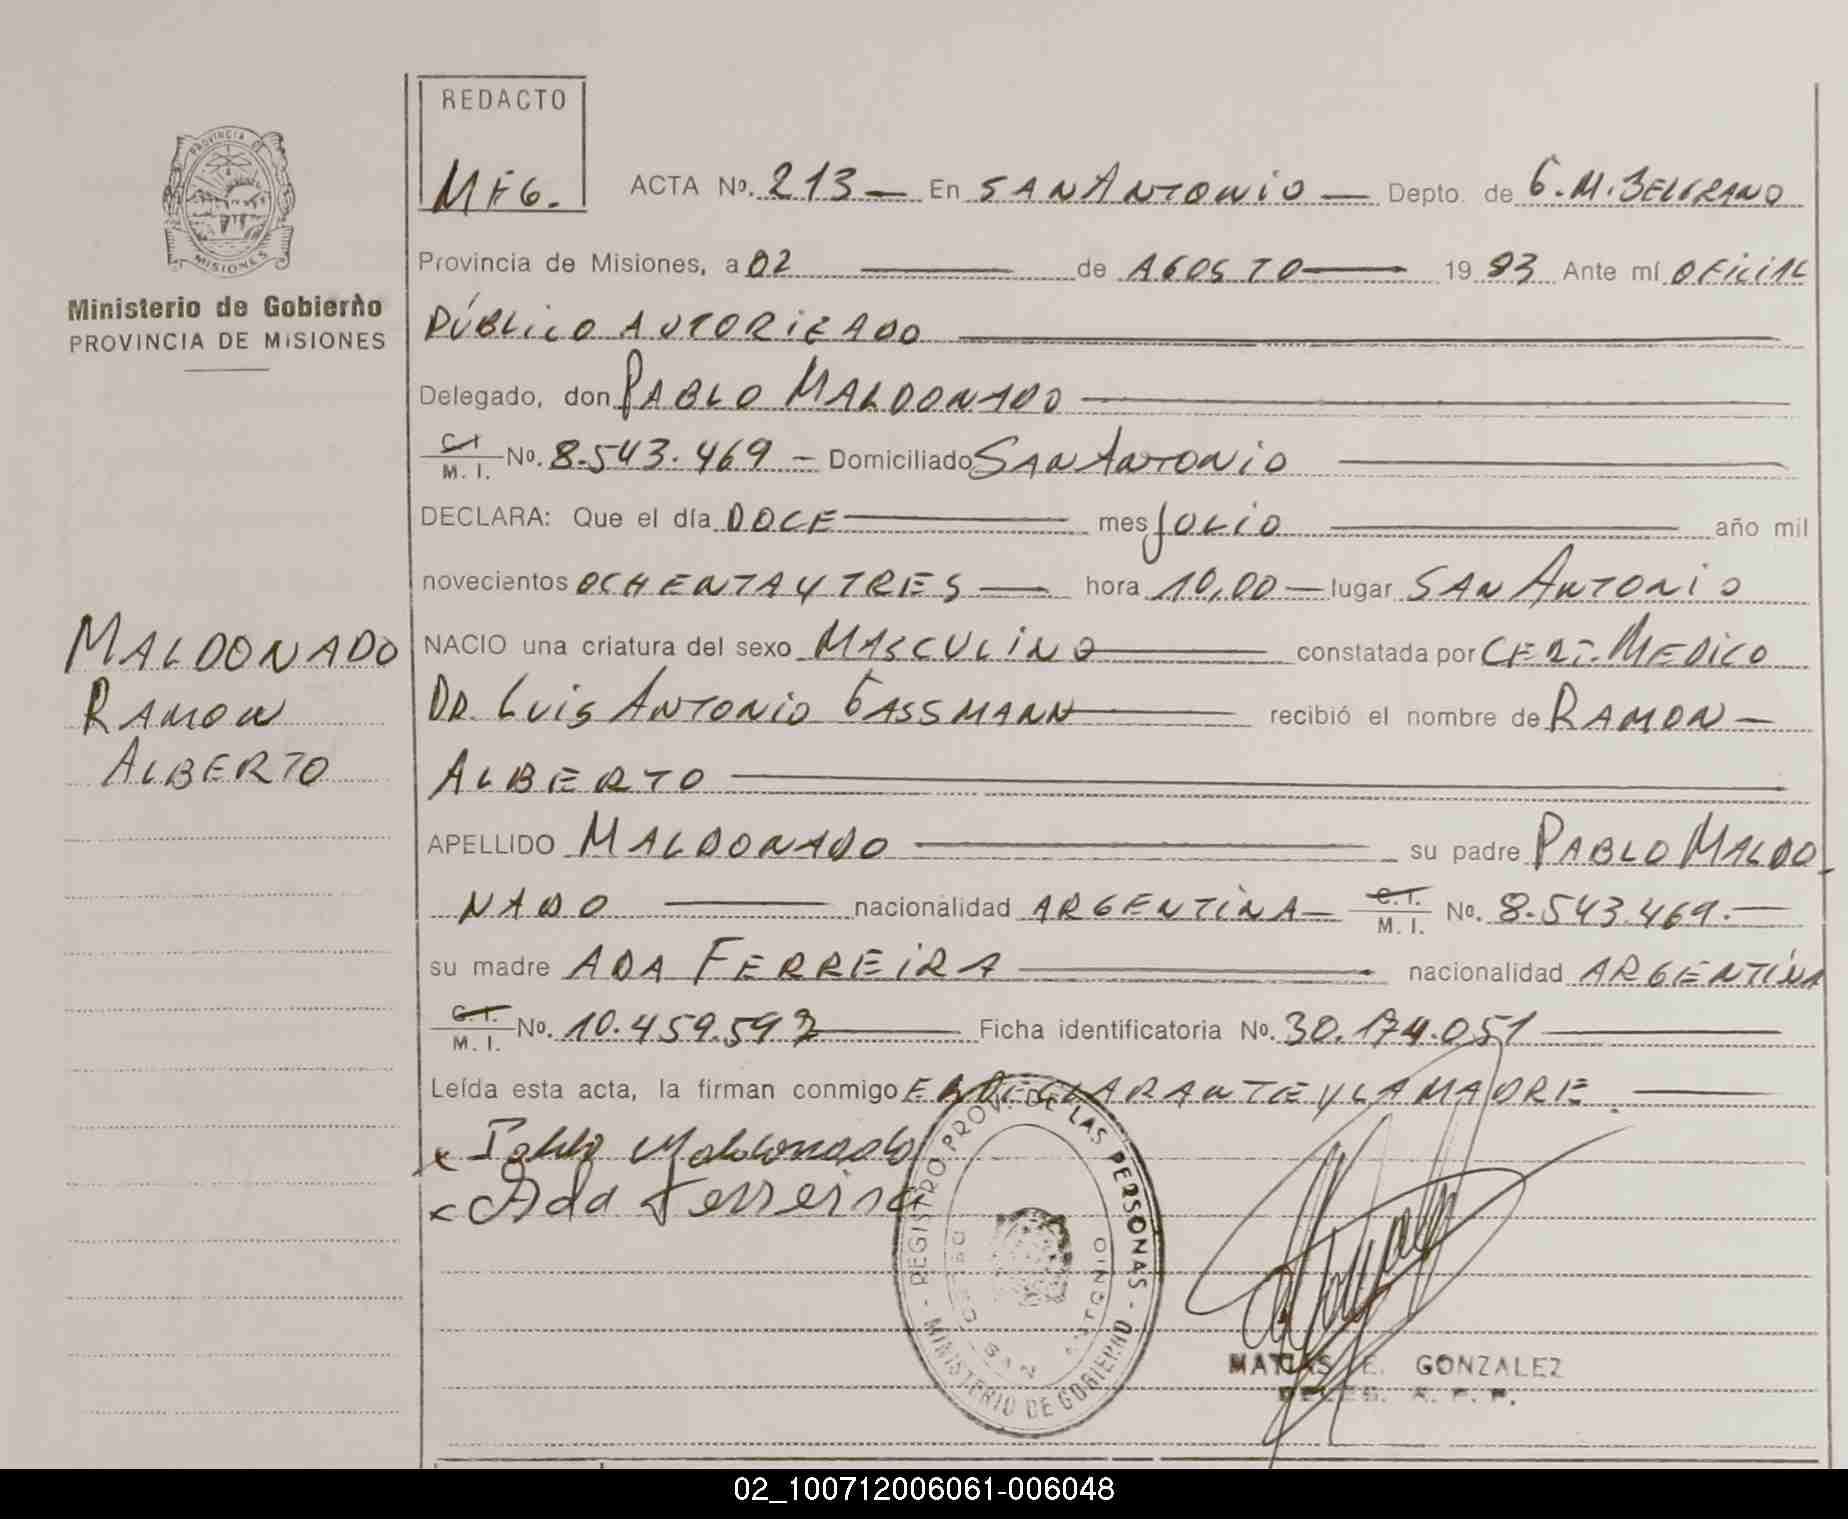 REDACTO
MEG.
ACTA No. 213 — En SAN ANTONIO — Depto. de G. M. BELGRANO
PROVINCIA DE
MISIONES
Ministerio de Gobierno
PROVINCIA DE MISIONES
Provincia de Misiones, a 02 — de AGOSTO — 1983 Ante mí OFICIAL
PÚBLICO AUTORIZADO
Delegado, don PABLO MALDONADO
C.I. M. I. No. 8.543.469 - Domiciliado SAN ANTONIO
DECLARA: Que el día DOCE — mes JULIO — año mil
novecientos OCHENTA Y TRES — hora 10,00 — lugar SAN ANTONIO
MALDONADO
RAMON
ALBERTO
NACIO una criatura del sexo MASCULINO — constatada por CERT. MEDICO
DR. LUIS ANTONIO GASSMANN — recibió el nombre de RAMON —
ALBERTO
APELLIDO MALDONADO — su padre PABLO MALDO-
NADO — nacionalidad ARGENTINA — C.I. M. I. No. 8.543.469. —
su madre ADA FERREIRA — nacionalidad ARGENTINA
C.I. M. I. No. 10.459.593 — Ficha identificatoria No. 30.174.051 —
Leída esta acta, la firman conmigo EL DECLARANTE Y LA MADRE. —
x Pablo Maldonado
x Ada Ferreira
REGISTRO PROV. DE LAS PERSONAS - MINISTERIO DE GOBIERNO -
SAN ANTONIO
MATIAS E. GONZALEZ
02_100712006061-006048